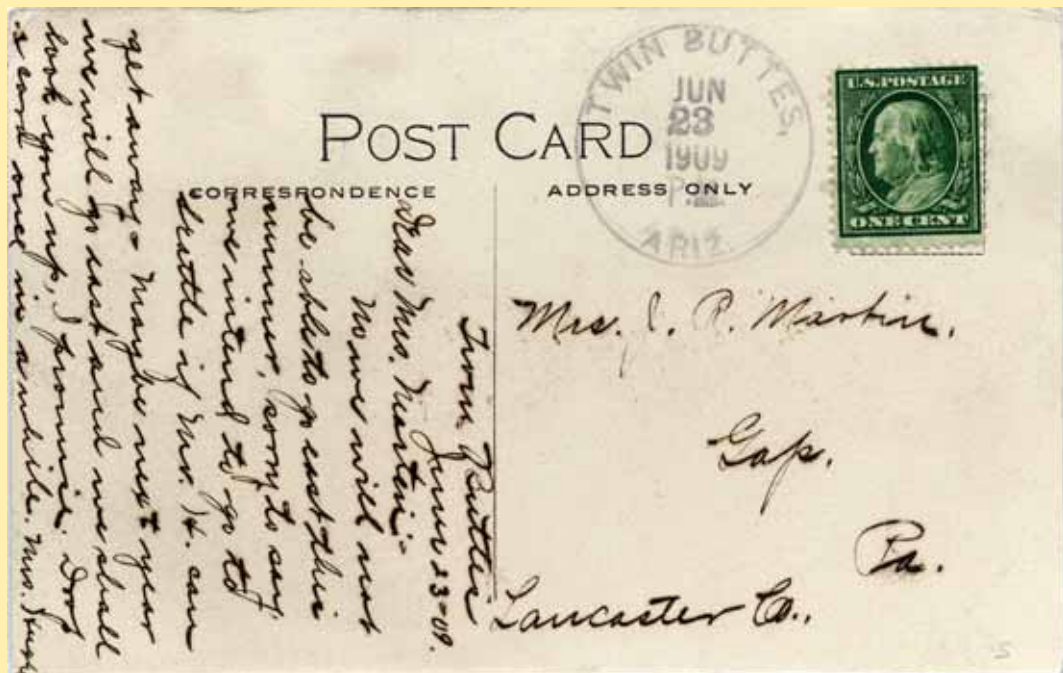 POST CARD
CORRESPONDENCE
ADDRESS ONLY
TWIN BUTTES,
JUN
23
1909
P.M.
ARIZ.
U.S. POSTAGE
ONE CENT
Mrs. J. P. Martin.
Gap.
Pa.
Lancaster Co.,
Twin Buttes
June 23-09.
Dear Mrs. Martin-
No we will not
be able to go east this
summer, sorry to say.
we intend to go to
Seattle if Mr. H. can
get away- Maybe next year
we will go east and we shall
look you up, I promise. Drop
a card once in a while. Mrs.